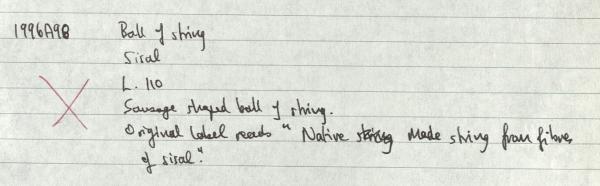 1996A98 Ball of string
Sisal
L. 110
Sausage shaped ball of string.
Original label reads "Native string made string from fibres
of sisal."